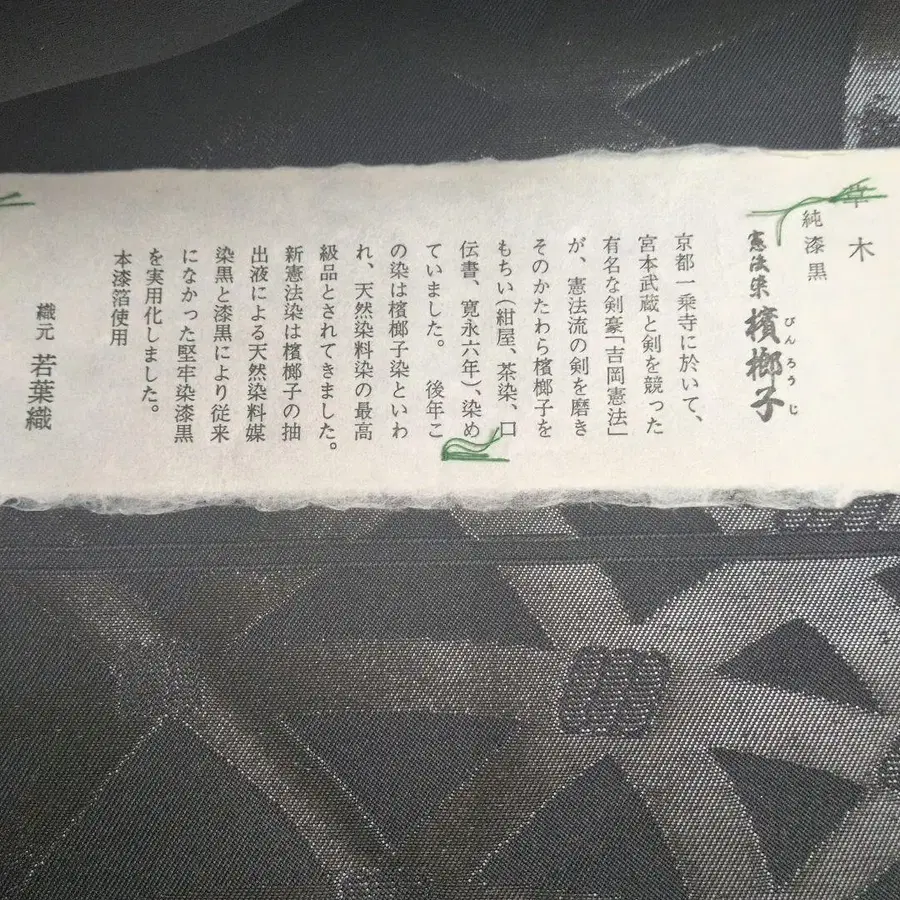 草木
純漆黒
憲法染 檳榔子
びんろうじ
京都一乗寺に於いて、
宮本武蔵と剣を競った
有名な剣豪「吉岡憲法」
が、憲法流の剣を磨き
そのかたわら檳榔子を
もちい(紺屋、茶染、口
伝書、寛永六年)、染め
ていました。 後年こ
の染は檳榔子染といわ
れ、天然染料染の最高
級品とされてきました。
新憲法染は檳榔子の抽
出液による天然染料媒
染黒と漆黒により従来
になかった堅牢染漆黒
を実用化しました。
本漆箔使用
織元 若葉織